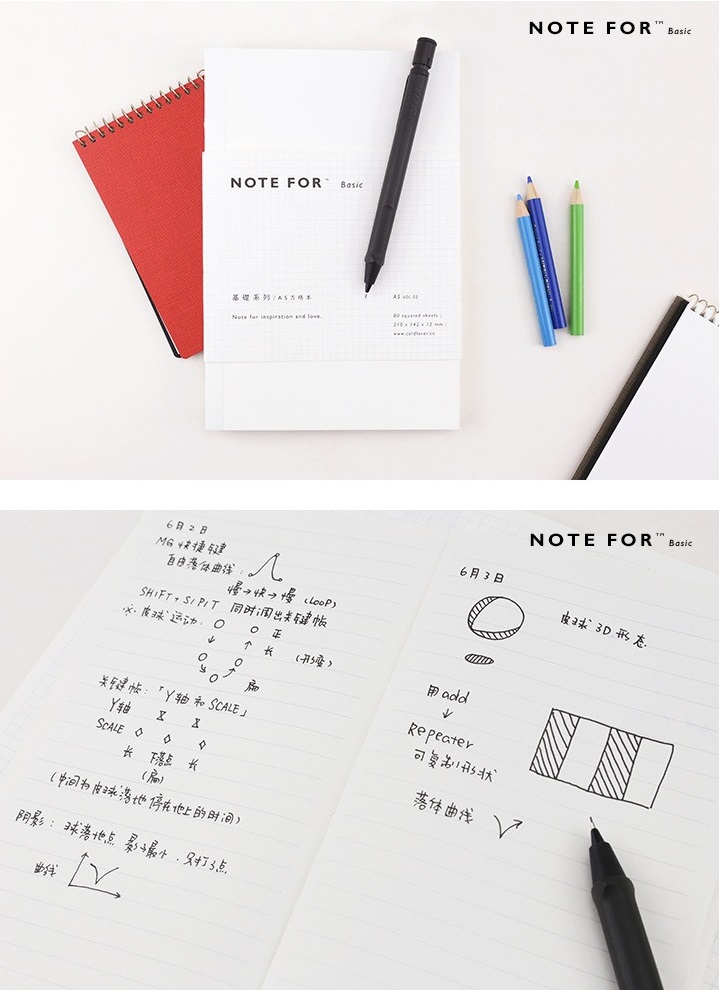 NOTE FOR™ Basic
NOTE FOR™ Basic
基礎系列/A5方格本
Note for inspiration and love.
A5 VOL.02
80 squared sheets ;
210 x 142 x 12 mm ;
www.cardlover.cn
NOTE FOR™ Basic
6月2日
MG 快捷键
自由落体曲线:
慢→快→慢 (LOOP)
SHIFT + S/P/T 同时调出关键帧
※. 皮球运动:
正
长 (形变)
扁
关键帧:「Y轴和SCALE」
Y轴
SCALE
长 下落点 长
(扁)
(中间为皮球落地停在地上的时间)
阴影: 球落地点 影子最小. 只打3点
曲线
6月3日
皮球3D形态
用add
Repeater
可复制形状
落体曲线